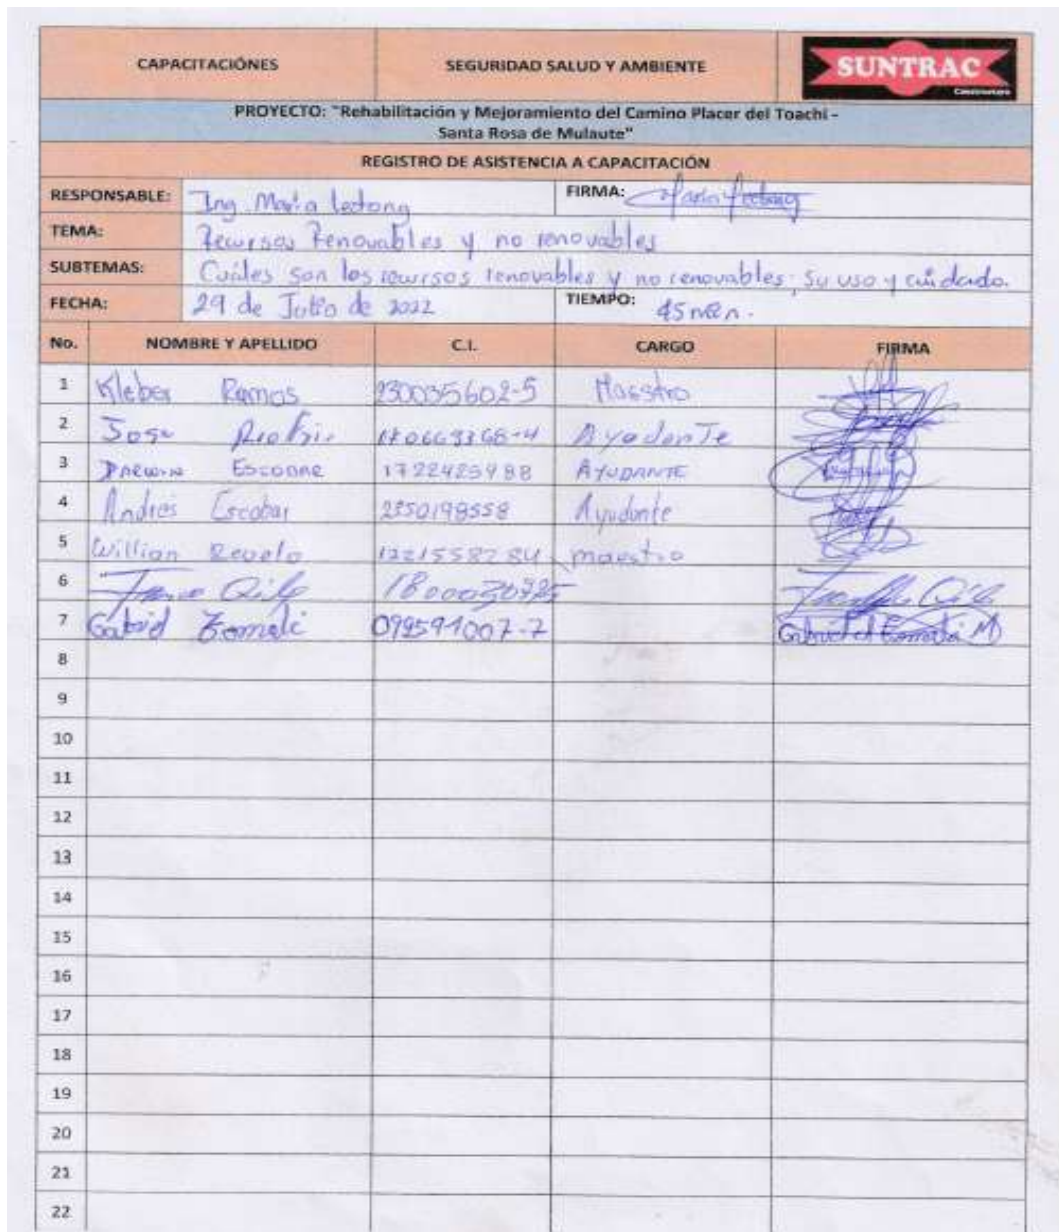 CAPACITACIÓNES
SEGURIDAD SALUD Y AMBIENTE
SUNTRAC
Constructora
PROYECTO: "Rehabilitación y Mejoramiento del Camino Placer del Toachi -
Santa Rosa de Mulaute"
REGISTRO DE ASISTENCIA A CAPACITACIÓN
RESPONSABLE: Ing. Maria Lectong FIRMA:
TEMA: Recursos Renovables y no renovables
SUBTEMAS: Cuáles son los recursos renovables y no renovables, su uso y cuidado.
FECHA: 29 de Julio de 2022 TIEMPO: 45 min.
No. NOMBRE Y APELLIDO C.I. CARGO FIRMA
1 Kleber Ramos 230035602-5 Maestro
2 Jose Ayudante
3 Darwin Escobar 1722425988 AYUDANTE
4 Andres Escobar 2350198558 Ayudante
5 Willian Revelo maestro
6
7 Gabriel
8
9
10
11
12
13
14
15
16
17
18
19
20
21
22